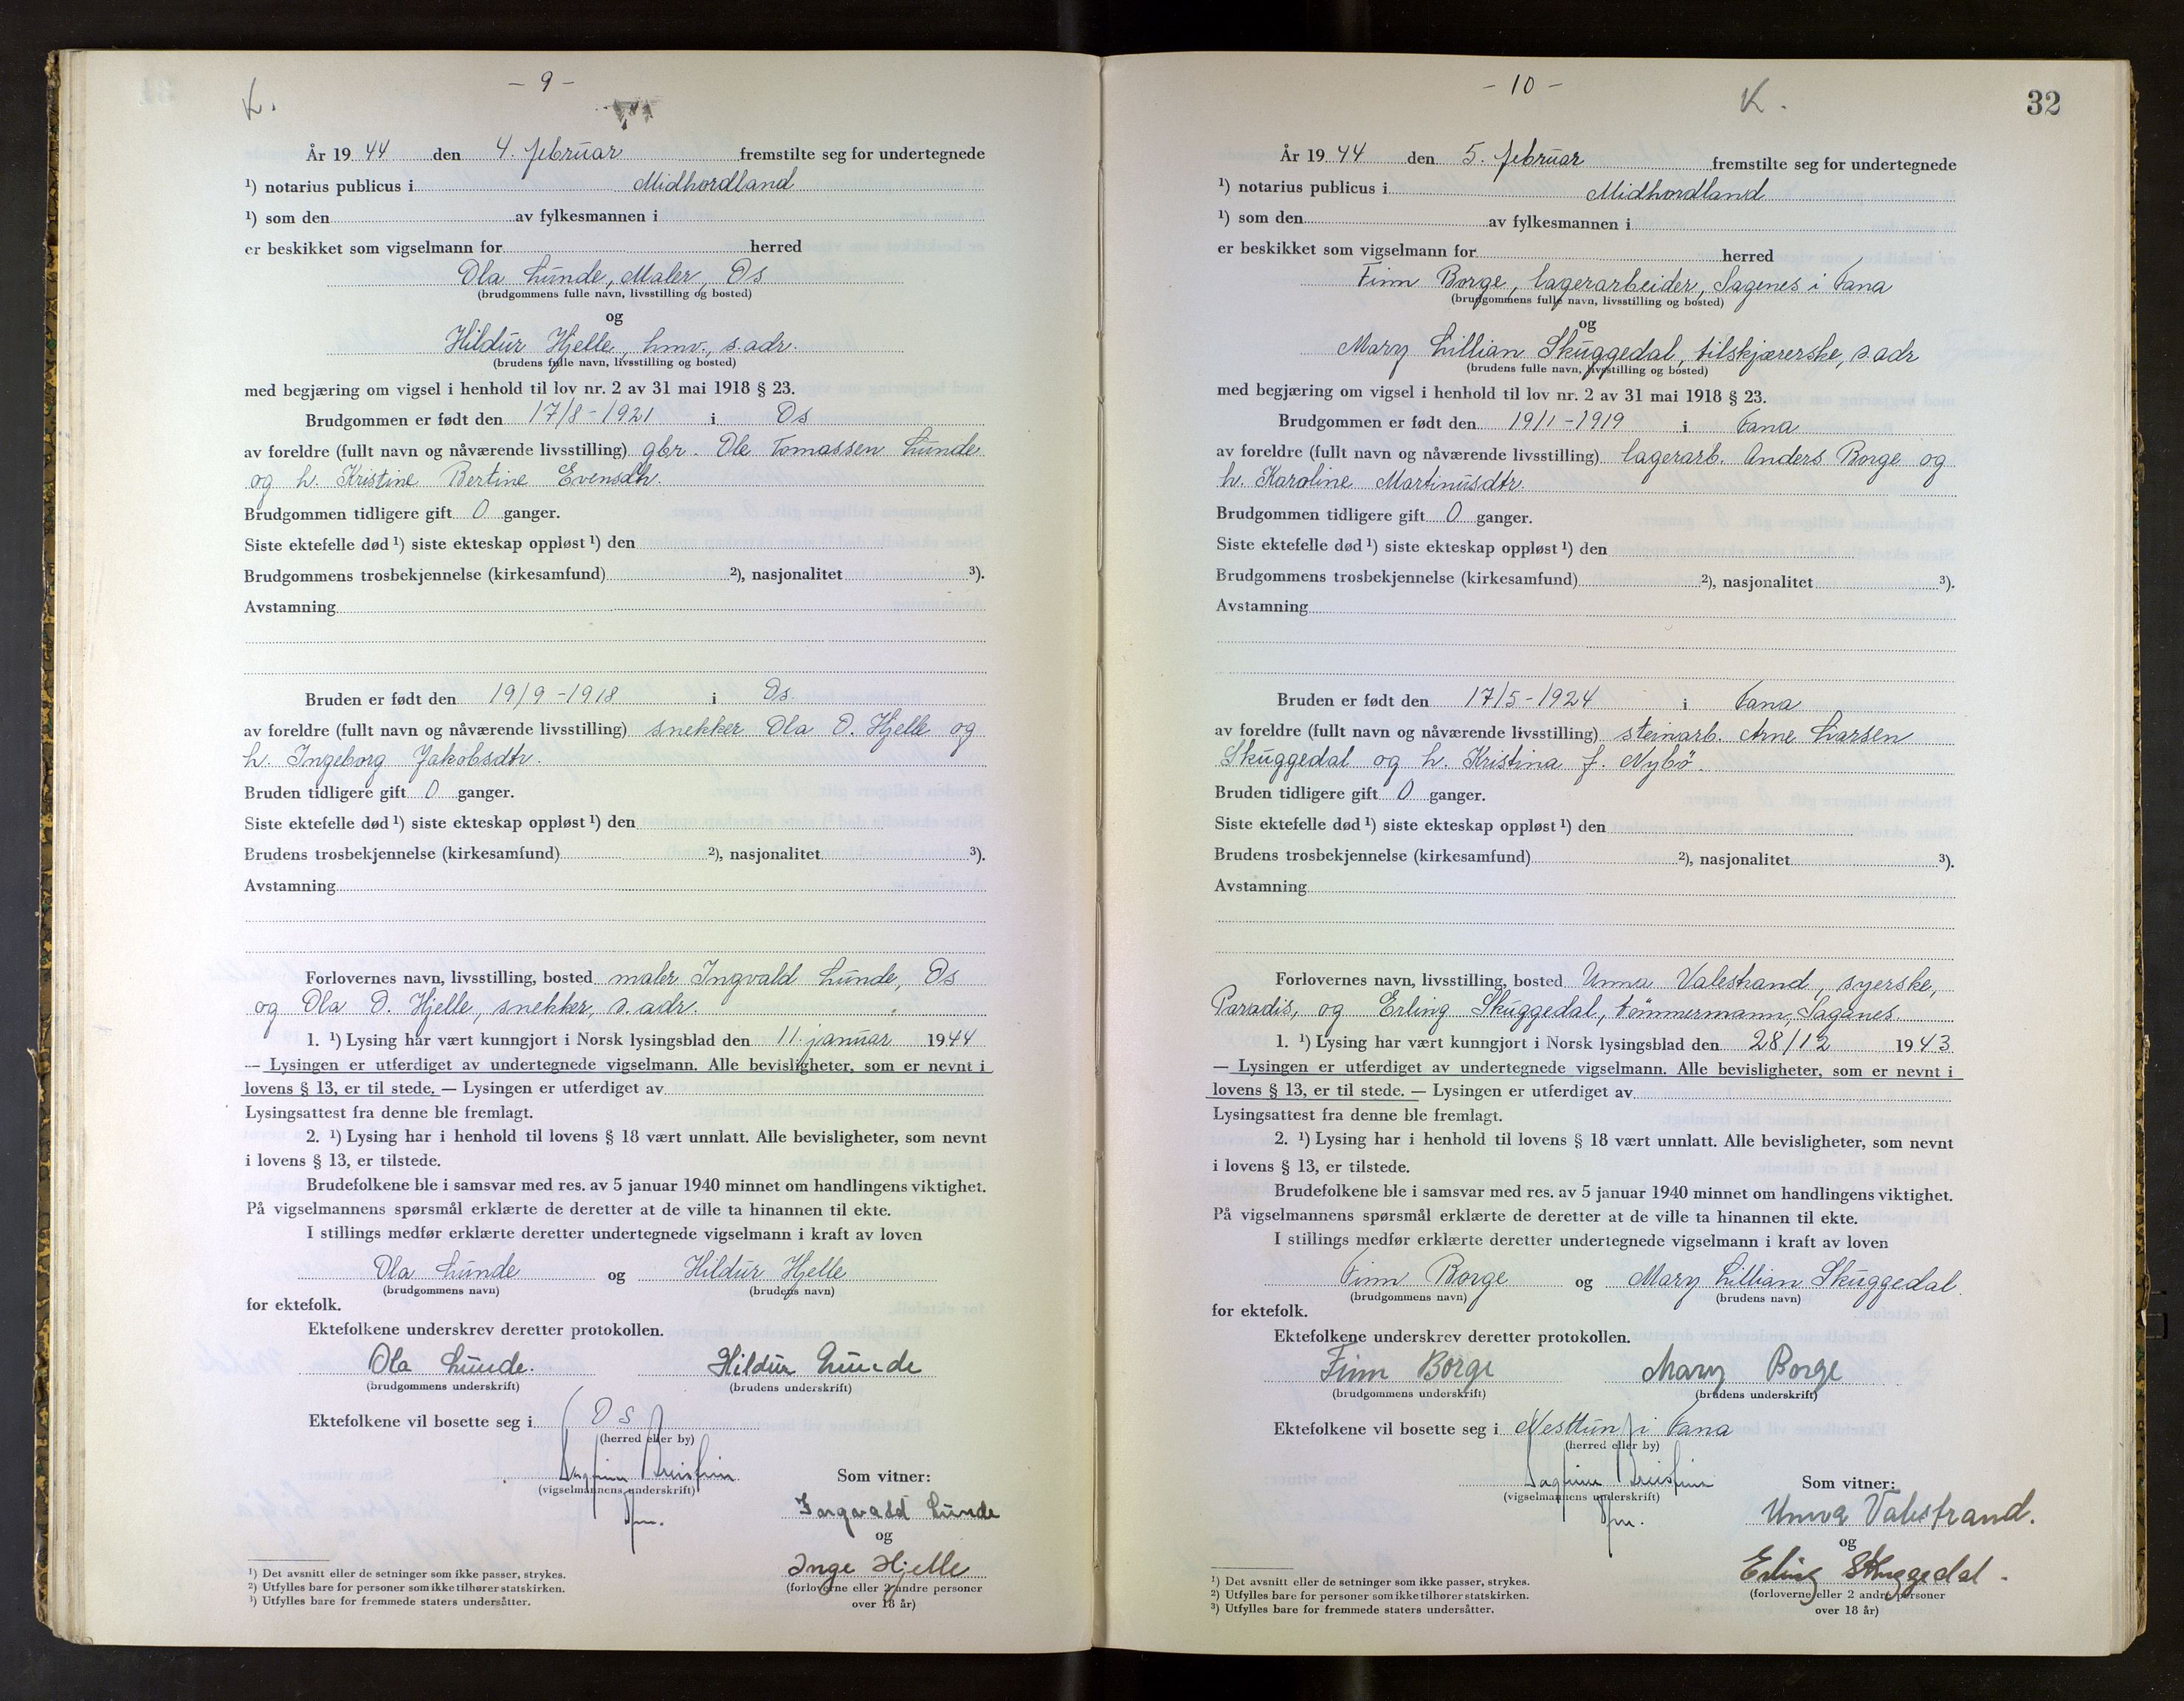 K.
– 9 –
År 19 44 den 4. februar fremstilte seg for undertegnede
¹) notarius publicus i Midhordland
¹) som den av fylkesmannen i
er beskikket som vigselmann for herred
Ola Lunde, Maler, Os
(brudgommens fulle navn, livsstilling og bosted)
og
Hildur Hjelle, hmv., s. adr.
(brudens fulle navn, livsstilling og bosted)
med begjæring om vigsel i henhold til lov nr. 2 av 31 mai 1918 § 23.
Brudgommen er født den 17/8 - 1921 i Os
av foreldre (fullt navn og nåværende livsstilling) gbr. Ole Tomassen Lunde
og h. Kristine Bertine Evensdtr.
Brudgommen tidligere gift 0 ganger.
Siste ektefelle død ¹) siste ekteskap oppløst ¹) den
Brudgommens trosbekjennelse (kirkesamfund) ²), nasjonalitet ³).
Avstamning
Bruden er født den 19/9 - 1918 i Os.
av foreldre (fullt navn og nåværende livsstilling) snekker Ola O. Hjelle og
h. Ingeborg Jakobsdtr.
Bruden tidligere gift 0 ganger.
Siste ektefelle død ¹) siste ekteskap oppløst ¹) den
Brudens trosbekjennelse (kirkesamfund) ²), nasjonalitet ³).
Avstamning
Forlovernes navn, livsstilling, bosted maler Ingvald Lunde, Os
og Ola O. Hjelle, snekker, s. adr.
1. ¹) Lysing har vært kunngjort i Norsk lysingsblad den 11. januar 1944
— Lysingen er utferdiget av undertegnede vigselmann. Alle bevisligheter, som er nevnt i
lovens § 13, er til stede. — Lysingen er utferdiget av
Lysingsattest fra denne ble fremlagt.
2. ¹) Lysing har i henhold til lovens § 18 vært unnlatt. Alle bevisligheter, som nevnt
i lovens § 13, er tilstede.
Brudefolkene ble i samsvar med res. av 5 januar 1940 minnet om handlingens viktighet.
På vigselmannens spørsmål erklærte de deretter at de ville ta hinannen til ekte.
I stillings medfør erklærte deretter undertegnede vigselmann i kraft av loven
Ola Lunde og Hildur Hjelle
(brudgommens navn) (brudens navn)
for ektefolk.
Ektefolkene underskrev deretter protokollen.
Ola Lunde. Hildur Lunde
(brudgommens underskrift) (brudens underskrift)
Ektefolkene vil bosette seg i Os
(herred eller by)
(vigselmannens underskrift)
Som vitner:
Ingvald Lunde
og
Inge Hjelle
(forloverne eller 2 andre personer
over 18 år)
¹) Det avsnitt eller de setninger som ikke passer, strykes.
²) Utfylles bare for personer som ikke tilhører statskirken.
³) Utfylles bare for fremmede staters undersåtter.
– 10 –
K.
32
År 19 44 den 5. februar fremstilte seg for undertegnede
¹) notarius publicus i Midhordland
¹) som den av fylkesmannen i
er beskikket som vigselmann for herred
Finn Borge, lagerarbeider, Sagenes i Fana
(brudgommens fulle navn, livsstilling og bosted)
og
Mary Lillian Skuggedal, tilskjærerske, s. adr
(brudens fulle navn, livsstilling og bosted)
med begjæring om vigsel i henhold til lov nr. 2 av 31 mai 1918 § 23.
Brudgommen er født den 19/1 - 1919 i Fana
av foreldre (fullt navn og nåværende livsstilling) lagerarb. Anders Borge og
h. Karoline Martinusdtr.
Brudgommen tidligere gift 0 ganger.
Siste ektefelle død ¹) siste ekteskap oppløst ¹) den
Brudgommens trosbekjennelse (kirkesamfund) ²), nasjonalitet ³).
Avstamning
Bruden er født den 17/5 - 1924 i Fana
av foreldre (fullt navn og nåværende livsstilling) steinarb. Arne Larsen
Skuggedal og h. Kristina f. Nybö.
Bruden tidligere gift 0 ganger.
Siste ektefelle død ¹) siste ekteskap oppløst ¹) den
Brudens trosbekjennelse (kirkesamfund) ²), nasjonalitet ³).
Avstamning
Forlovernes navn, livsstilling, bosted Unna Valestrand, syerske,
Paradis, og Erling Skuggedal, tömmermann, Saganes
1. ¹) Lysing har vært kunngjort i Norsk lysingsblad den 28/12 1943
— Lysingen er utferdiget av undertegnede vigselmann. Alle bevisligheter, som er nevnt i
lovens § 13, er til stede. — Lysingen er utferdiget av
Lysingsattest fra denne ble fremlagt.
2. ¹) Lysing har i henhold til lovens § 18 vært unnlatt. Alle bevisligheter, som nevnt
i lovens § 13, er tilstede.
Brudefolkene ble i samsvar med res. av 5 januar 1940 minnet om handlingens viktighet.
På vigselmannens spørsmål erklærte de deretter at de ville ta hinannen til ekte.
I stillings medfør erklærte deretter undertegnede vigselmann i kraft av loven
Finn Borge og Mary Lillian Skuggedal
(brudgommens navn) (brudens navn)
for ektefolk.
Ektefolkene underskrev deretter protokollen.
Finn Borge Mary Borge
(brudgommens underskrift) (brudens underskrift)
Ektefolkene vil bosette seg i Nesttun i Fana
(herred eller by)
(vigselmannens underskrift)
Som vitner:
Unna Valestrand.
og
Erling Skuggedal.
(forloverne eller 2 andre personer
over 18 år)
¹) Det avsnitt eller de setninger som ikke passer, strykes.
²) Utfylles bare for personer som ikke tilhører statskirken.
³) Utfylles bare for fremmede staters undersåtter.